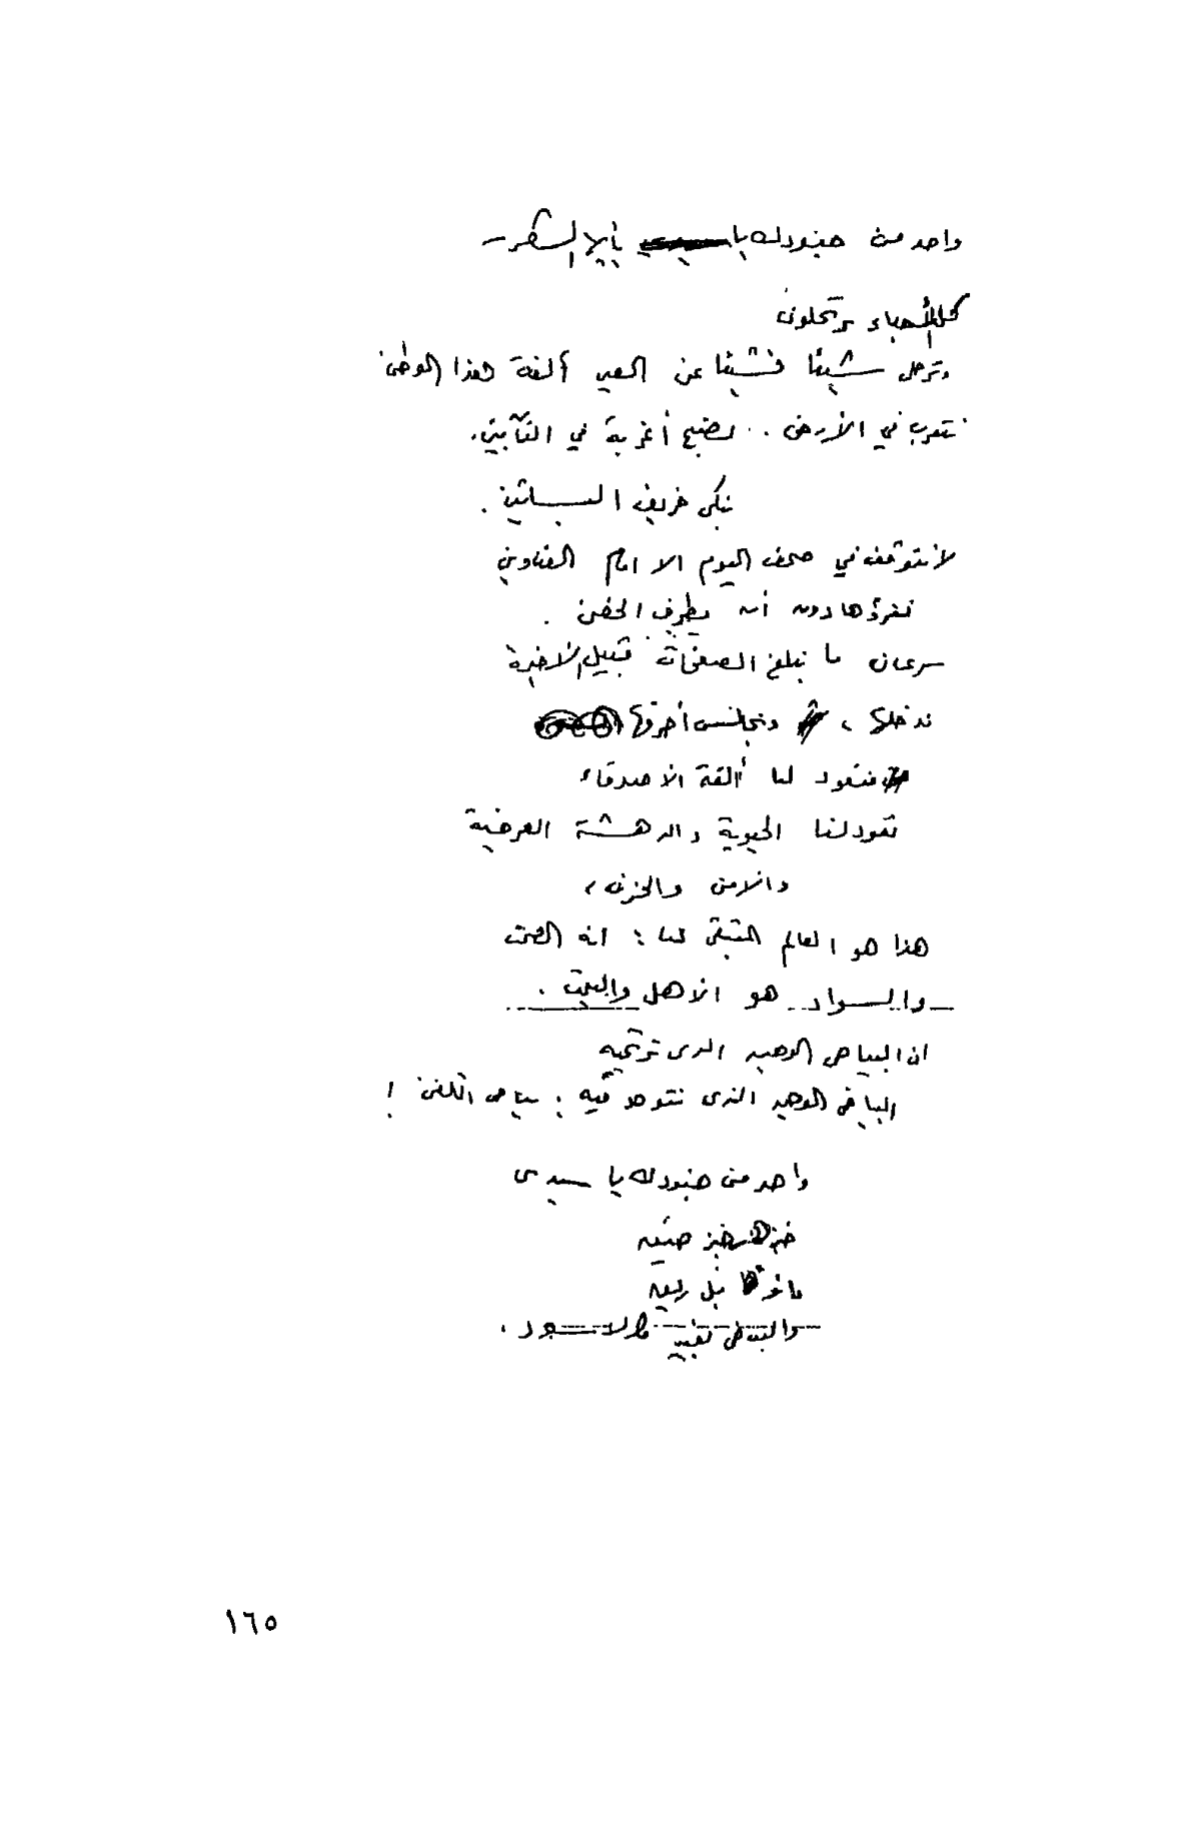 واحد من جنودك يا سيدي يأيها السقر
كل الأحباء يرتحلون
وترحل شيئا فشيئا عن العين ألفة هذا الوطن
نتغرب في الأرض .. نصبح أغربة في التآبين.
نبكى خريف البساتين .
لا نتوقف في صحف اليوم الا امام العناوين
نقرؤها دون أن يطرف الجفن .
سرعان ما نبلغ الصفحات قبيل الأخيرة
ندخلها ، ونجالس أحرفها
فتعود لنا ألفة الأصدقاء
تعود لنا الحيوية والدهشة العرضية
والأمن والحزن ،
هذا هو العالم المتبقى لنا : انه الصمت
والسواد هو الأهل والبيت .
ان البياض الوحيد الذى نرتجيه
البياض الوحيد الذى نتوحد فيه : بياض الكفن !
واحد من جنودك يا سيدى
خبز
والأسود .
١٦٥